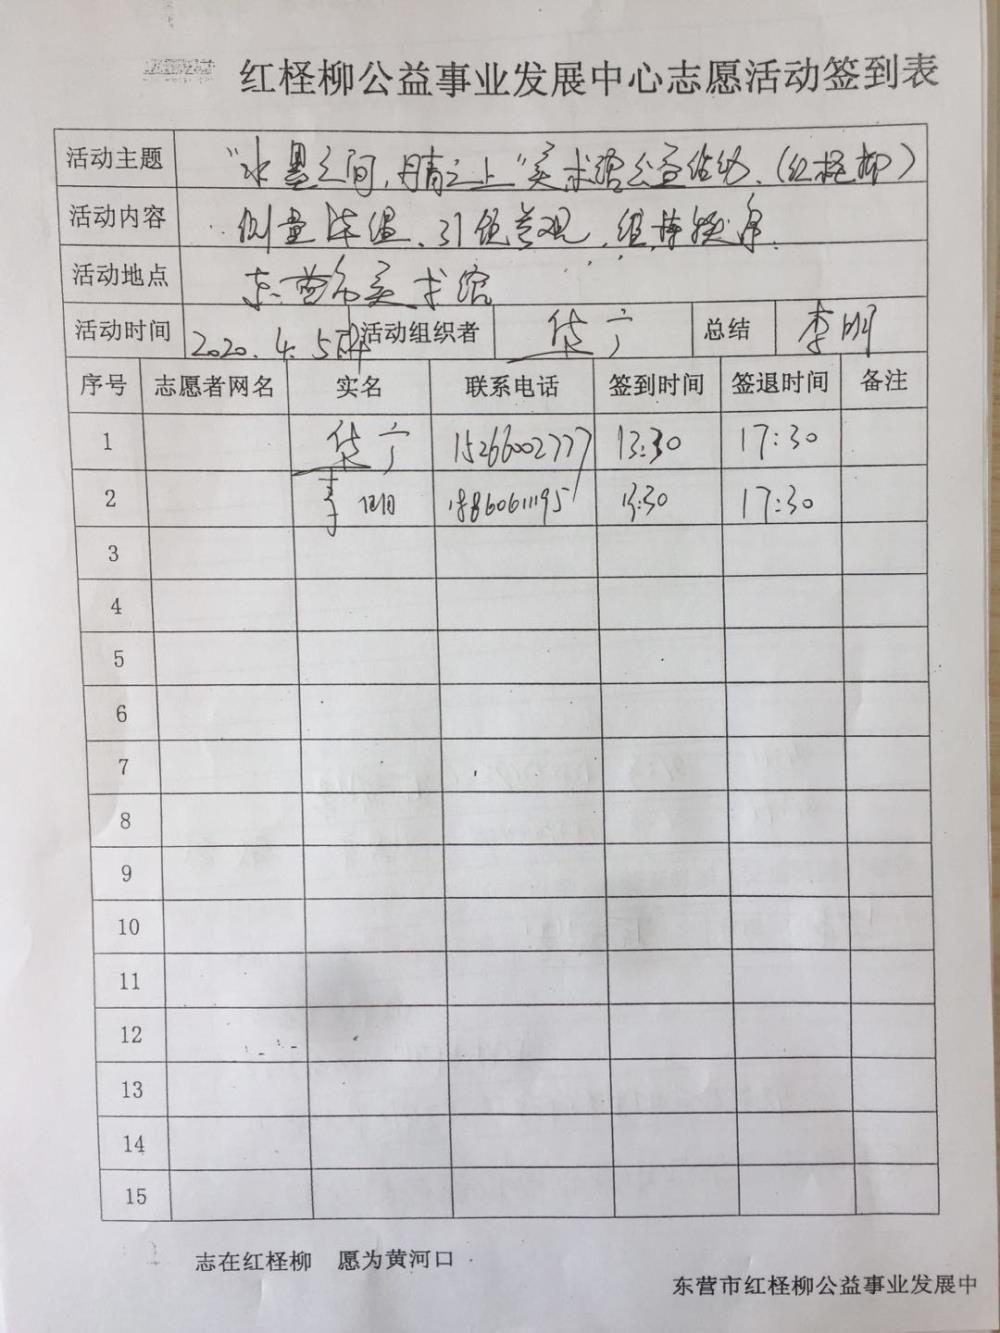 红柽柳公益事业发展中心志愿活动签到表
活动主题 "水墨之间,丹青之上"美术馆公益活动、(红柽柳)
活动内容 测量体温、引领参观、维持秩序.
活动地点 东营市美术馆
活动时间 2020.4.5 活动组织者 总结 李明
序号 志愿者网名 实名 联系电话 签到时间 签退时间 备注
1 15266002777 13:30 17:30
2 李明 18860611195 13:30 17:30
3
4
5
6
7
8
9
10
11
12
13
14
15
志在红柽柳 愿为黄河口
东营市红柽柳公益事业发展中